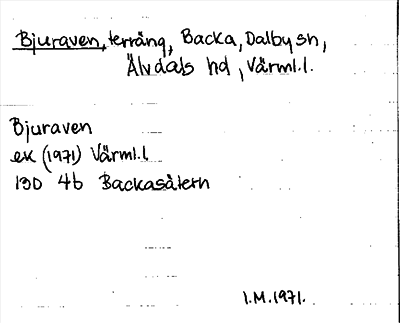 Bjuraven, terräng, Backa, Dalby sn,
Älvdals hd, Värml.l.
Bjuraven
ek (1971) Värml.l
13D 4b Backasätern
I.M.1971.